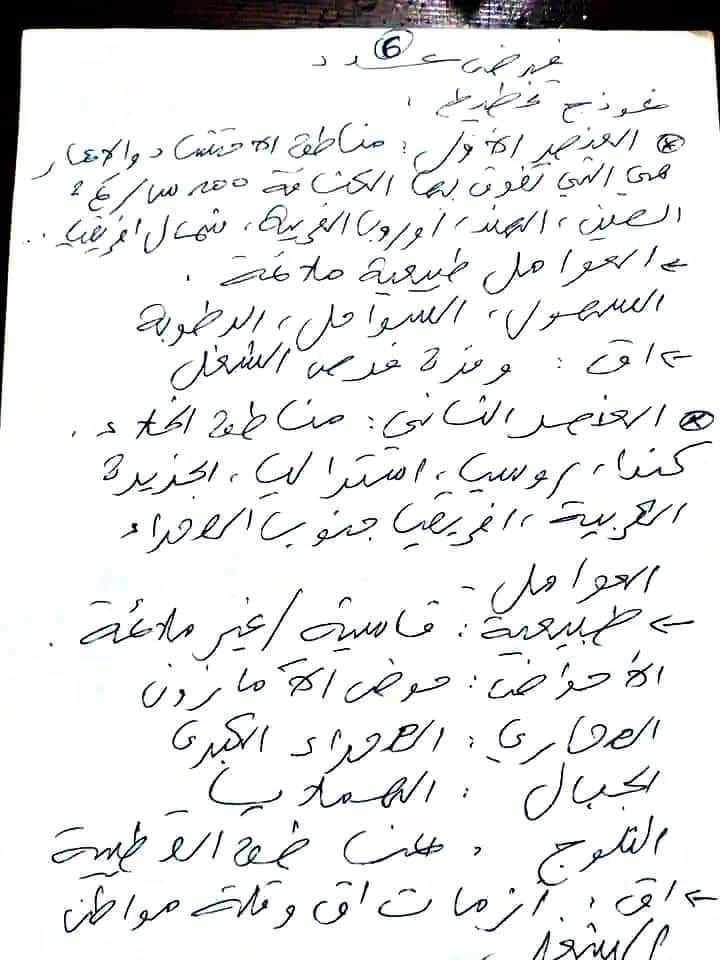 6
نموذج تخطيط :
العنصر الأول : مناطق الاكتظاظ والاعمار
هي التي تفوق بها الكثافة 200 س/كم2
الصين ، الهند ، أوروبا الغربية ، شمال افريقيا ..
← العوامل طبيعية ملائمة .
السهول ، السواحل ، الرطوبة
← اق : وفرة فرص الشغل
العنصر الثاني : مناطق الخلاء .
كندا ، روسيا ، استراليا ، الجزيرة
العربية ، افريقيا جنوب الصحراء
العوامل
← طبيعية : قاسية / غير ملائمة .
الأحواض : حوض الأمازون
الصحاري : الصحراء الكبرى
الجبال : الهملايا
الثلوج : المناطق القطبية
← اق : أزمات اق وقلة مواطن
الشغل